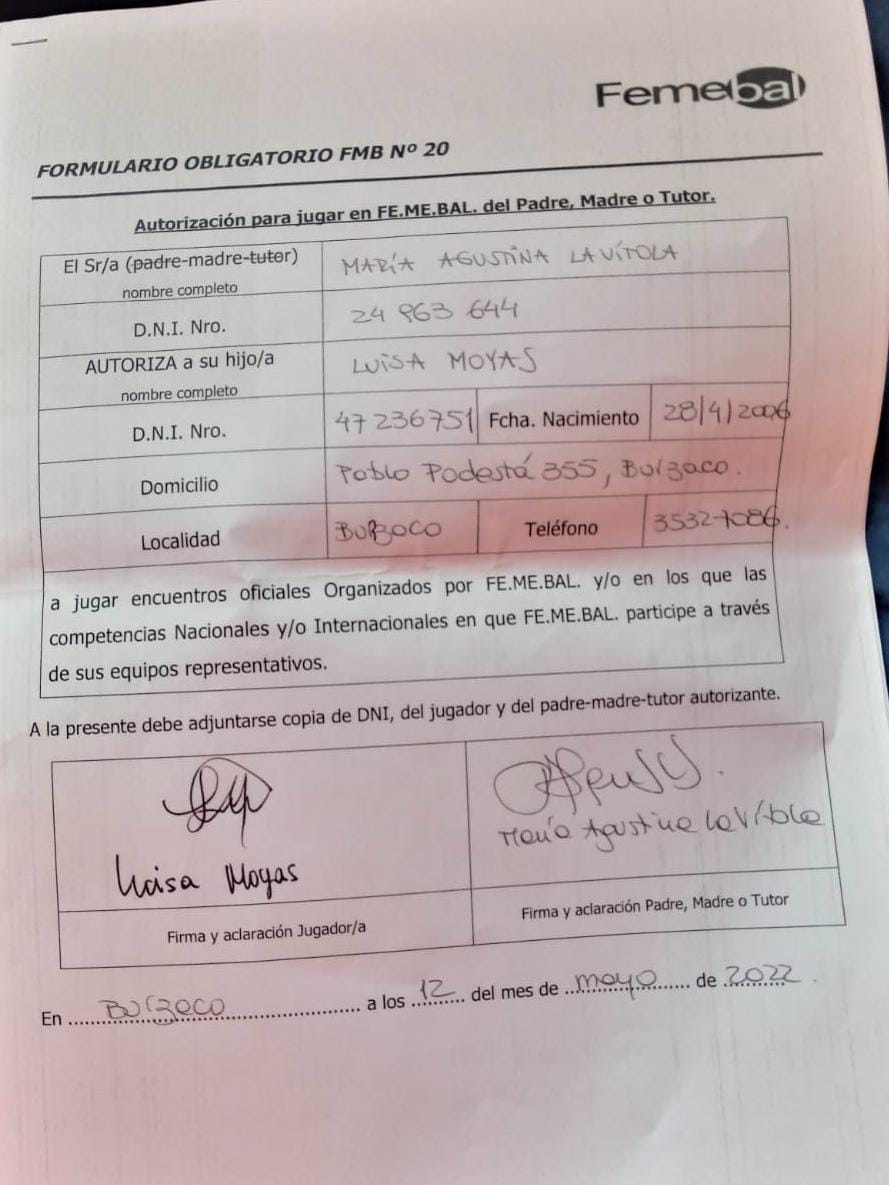 Femebal
FORMULARIO OBLIGATORIO FMB Nº 20
Autorización para jugar en FE.ME.BAL. del Padre, Madre o Tutor.
El Sr/a (padre-madre-tutor) MARÍA AGUSTINA LAVÍTOLA
nombre completo
D.N.I. Nro. 24 963 644
AUTORIZA a su hijo/a LUISA MOYAS
nombre completo
D.N.I. Nro. 47 236751 Fcha. Nacimiento 28/4/2006
Domicilio Pablo Podestá 355, Burzaco.
Localidad BURZACO Teléfono 3532-7086.
a jugar encuentros oficiales Organizados por FE.ME.BAL. y/o en los que las
competencias Nacionales y/o Internacionales en que FE.ME.BAL. participe a través
de sus equipos representativos.
A la presente debe adjuntarse copia de DNI, del jugador y del padre-madre-tutor autorizante.
María Agustina Lavítola
Luisa Moyas
Firma y aclaración Jugador/a Firma y aclaración Padre, Madre o Tutor
En Burzaco a los 12 del mes de mayo de 2022.